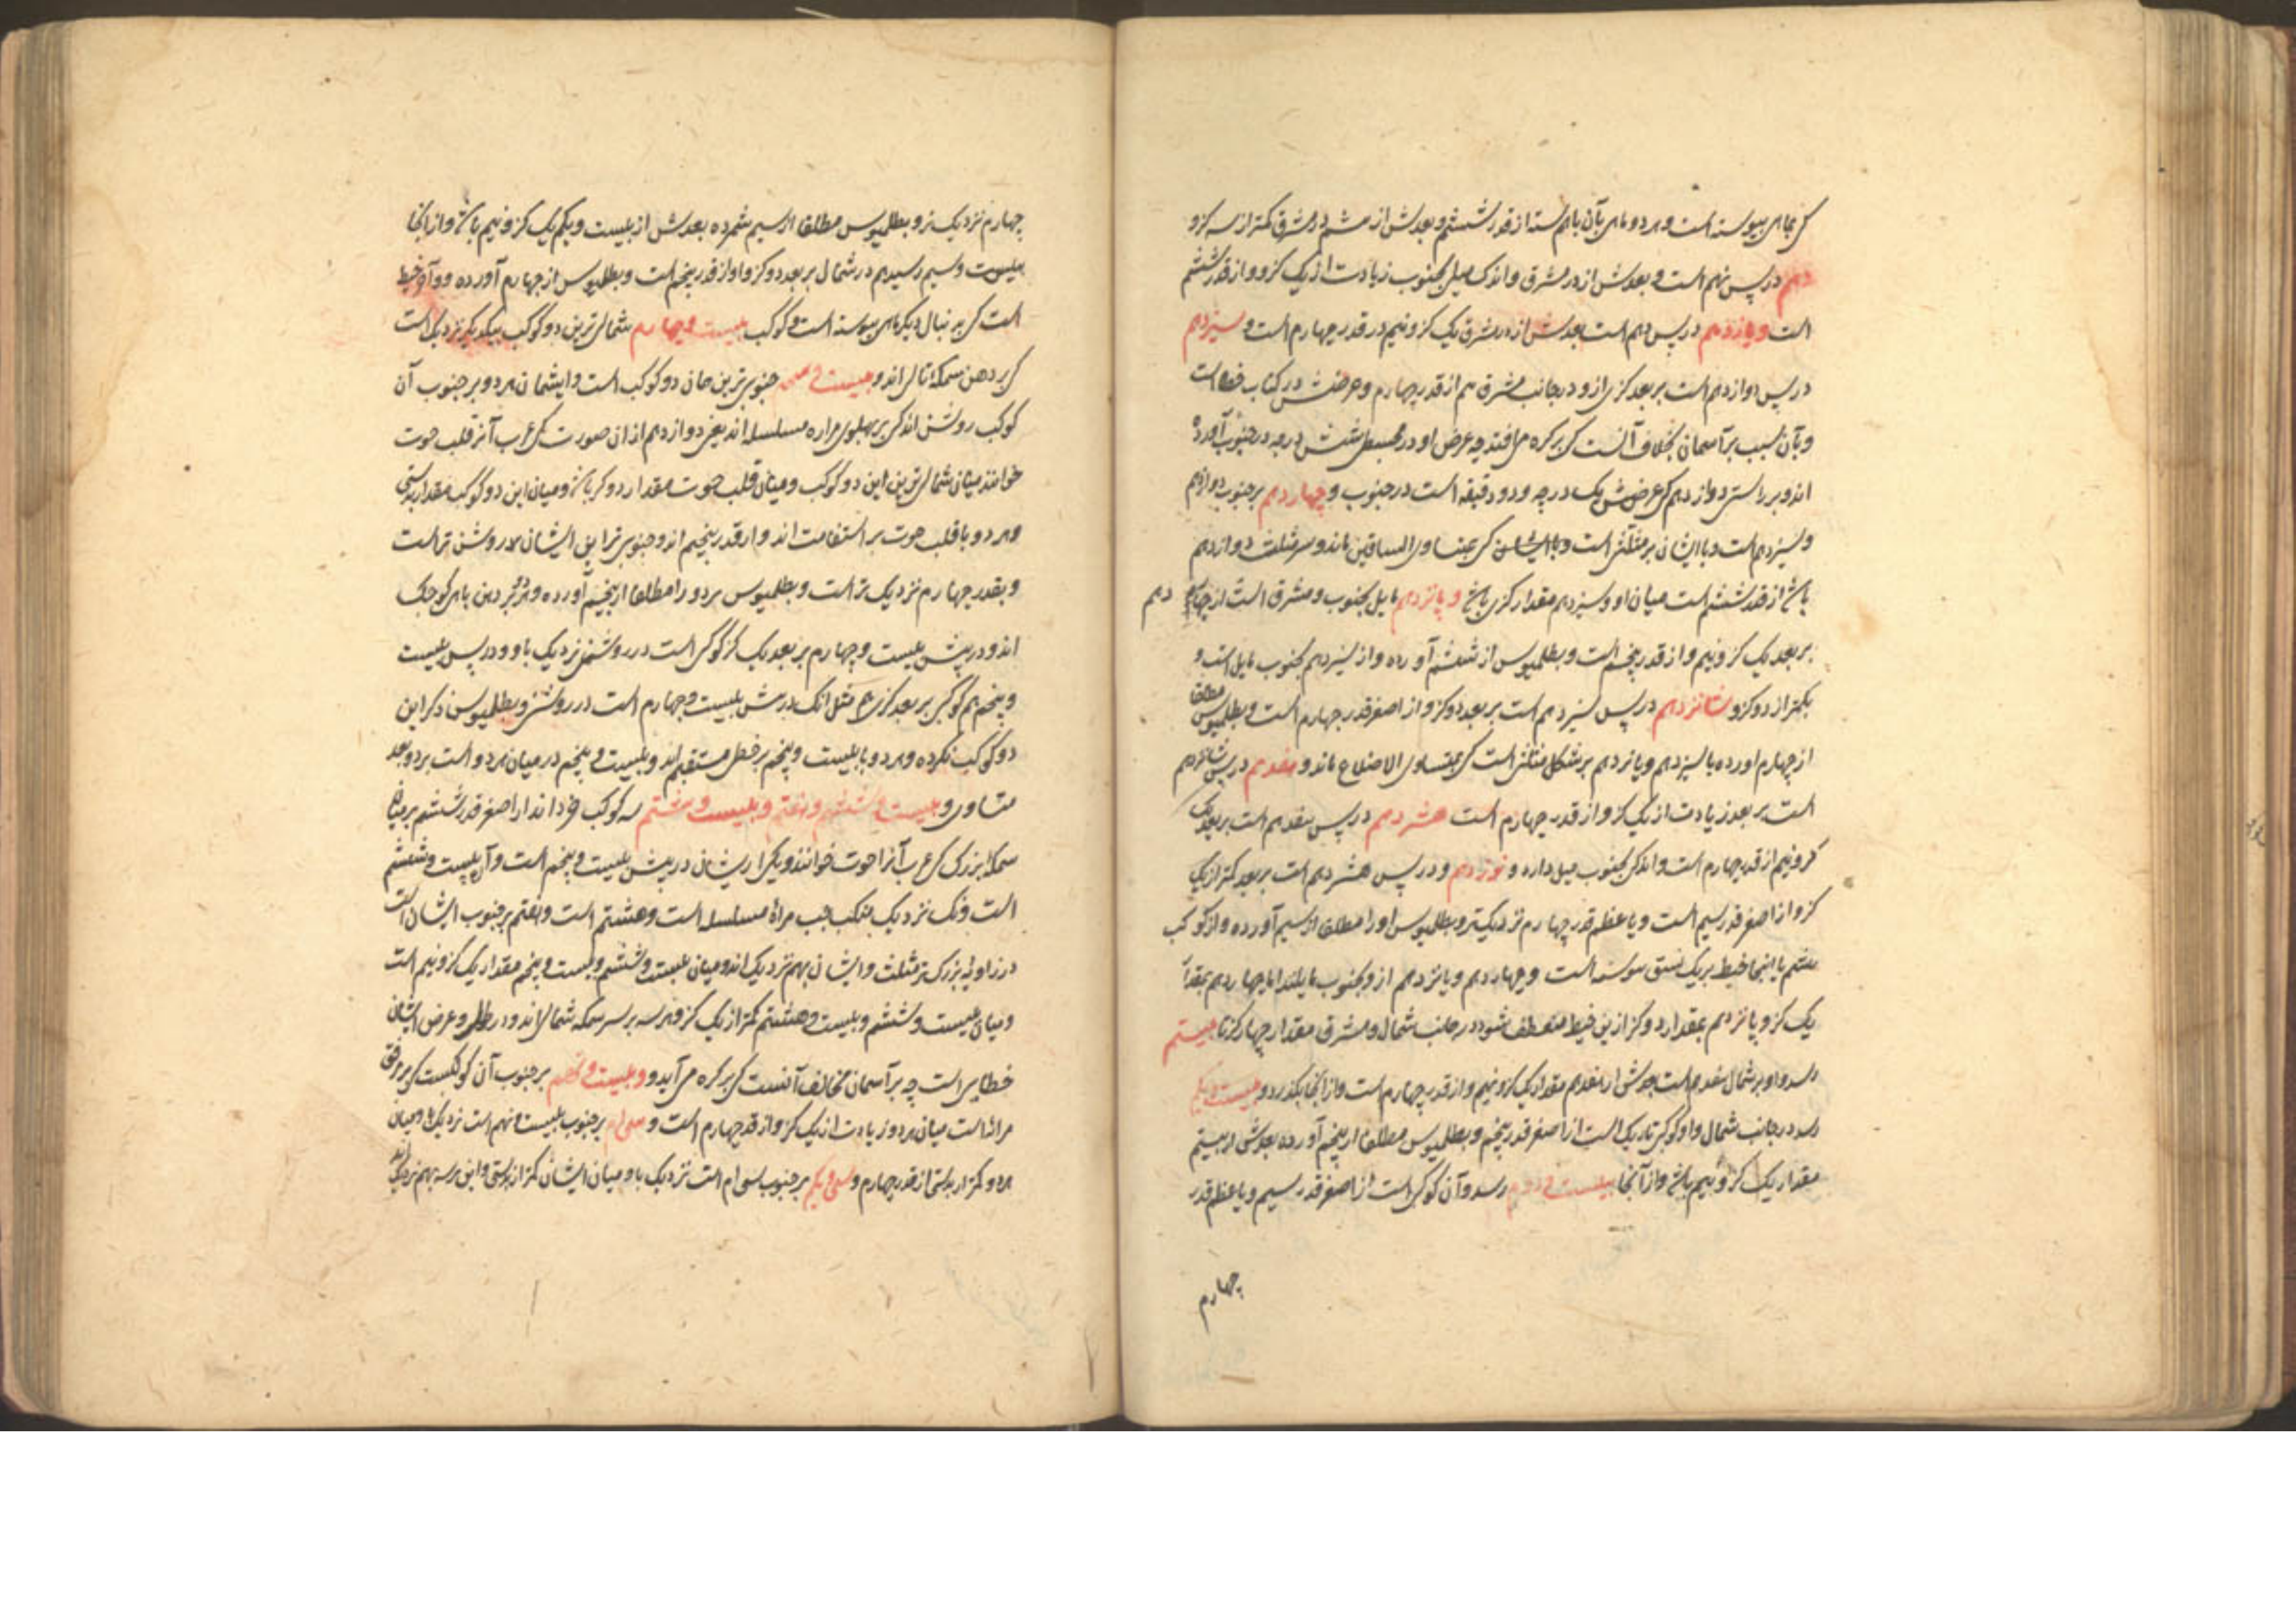 کی بماهی پیوسته است و هر دو ماهی بآن باهم بسته از قدر ششم و بعدش از هشتم در مشرق کمتر از سه کز و
دهم در پس نهم است و بعدش از در مشرق و اندک میل بجنوب زیادت از یک کز و واز قدر ششم
است و یازدهم در پس دهم است بعدش از در مشرق یک کز و نیم در قدر چهارم است و سیزدهم
در پس دوازدهم است بر بعد کزی از و در جانب مشرق هم از قدر چهارم و عرضش در کتاب خطاست
و بآن سبب بر آسمان بخلاف آنست کی بر کره می افتد چه عرض او در مجسطی شش درجه در جنوب آورده
اند و بر راستی دوازدهم کی عرضش یک درجه و دو دقیقه است در جنوب و چهاردهم بر جنوب دوازدهم
و سیزدهم است و با ایشان بر مثلثی است کی بمتساوی الساقین ماند و سر مثلث دوازدهم
باشد از قدر ششم است میان او و سیزدهم مقدار کزی باشد و پانزدهم مایل بجنوب و مشرق است از چهار دهم
بر بعد یک کز و نیم و از قدر پنجم است و بطلمیوس از ششم آورده و از سیزدهم بجنوب مایل است و
بکمتر از دو کز و شانزدهم در پس سیزدهم است بر بعد دو کز و از اصغر قدر چهارم است و بطلمیوس مطلقا
از چهارم اورده با سیزدهم و پانزدهم بر شکل مثلثی است کی بمتساوی الاضلاع ماند و هفدهم در پس شانزدهم
است بر بعد زیادت از یک کز و از قدر چهارم است هشردهم در پس هفدهم است بر بعد یک
کز و نیم از قدر چهارم است و اندکی بجنوب میل دارد و نوزدهم و در پس هشردهم است بر بعد کمتر از یک
کز و از اصغر قدر سیم است و با عظم قدر چهارم نزدیکتر و بطلمیوس او را مطلقا از سیم آورده و از کوکب
هشتم با اینجا خیط بر یک نسق پیوسته است و چهاردهم و پانزدهم از و بجنوب مایلند اما چهاردهم بمقدار
یک کز و پانزدهم بمقدار دو کز از ین خیط منعطف شود در جانب شمال و مشرق مقدار چهار کز تا بیستم
رسد و او بر شمال هفدهم است بعدش از هفدهم مقدار یک کز و نیم و از قدر چهارم است و از انجا بکذرد و بیست و یکم
رسد در جانب شمال و او کوکبی تاریک است از اصغر قدر پنجم و بطلمیوس مطلقا از پنجم آورده بعدش از بیستم
مقدار یک کز و نیم باشد و از آنجا ببیست و دوم رسد و آن کوکبی است از اصغر قدر سیم و با عظم قدر
چهارم
چهارم نزدیک تر و بطلمیوس مطلقا از سیم شمرده بعدش از بیست و یکم یک کز و نیم باشد و از انجا
ببیست و سیم رسیدیم در شمال بر بعد دو کز و او از قدر پنجم است و بطلمیوس از چهارم آورده و و آخر خیط
است کی به دنبال دیگر ماهی پیوسته است و کوکب بیست و چهارم شمالی ترین دو کوکب بیکدیگر نزدیک است
کی بر دهن سمکه تالی اند و بیست و پنجم جنوبی ترین همان دو کوکب است و ایشان هر دو بر جنوب آن
کوکب روشن اند کی بر پهلوی مراه مسلسله اند یعنی دوازدهم از ان صورت کی عرب آنرا قلب حوت
خوانند میان شمالی ترین این دو کوکب و میان قلب حوت مقدار دو کز باشد و میان این دو کوکب مقدار بدستی
و هر دو با قلب حوت بر استقامت اند و از قدر پنجم اند و جنوبی ترا ین ایشان روشن تر است
و بقدر چهارم نزدیک تر است و بطلمیوس هر دو را مطلقا از پنجم آورده و هر دو بر دهن ماهی کوچک
اند و در پیش بیست و چهارم بر بعد یک کز کوکبی است در روشنی نزدیک باو و در پس بیست
و پنجم هم کوکبی بر بعد کزی مثل انک در پیش بیست و چهارم است در روشنی و بطلمیوس ذکر این
دو کوکب نکرده و هر دو با بیست و پنجم بر خطی مستقیم اند و بیست و پنجم در میان هر دو است بر دو بعد
متساوی و بیست و ششم و هفتم و بیست و هشتم سه کوکب خرد اند از اصغر قدر ششم بر میان
سمکه بزرک کی عرب آنرا حوت خوانند و یکی از ایشان در پیش بیست و پنجم است و آن بیست و ششم
است و نزدیک بمنکب جنب مراة مسلسله است و هشتم است و هفتم بر جنوب ایشان است
در زاویه بزرک تر مثلث و ایشان بهم نزدیک اند و میان بیست و ششم و بیست و پنجم مقدار یک کز و نیم است
و میان بیست و ششم و بیست و هشتم کمتر از یک کز و هر سه بر سر سمکه شمالی اند و در طول و عرض ایشان
خطایی است چه بر آسمان مخالف آنست کی بر کره می آید و و بیست و نهم بر جنوب آن کوکبست کی بر مرفق
مراة است میان هر دو زیادت از یک کز و از قدر چهارم است و سی ام بر جنوب بیست و نهم است نزدیک باو میان
هر دو کمتر از بدستی از قدر چهارم و سی و یکم بر جنوب سی ام است نزدیک باو میان ایشان کمتر از بدستی و این هر سه بهم نزدیک اند